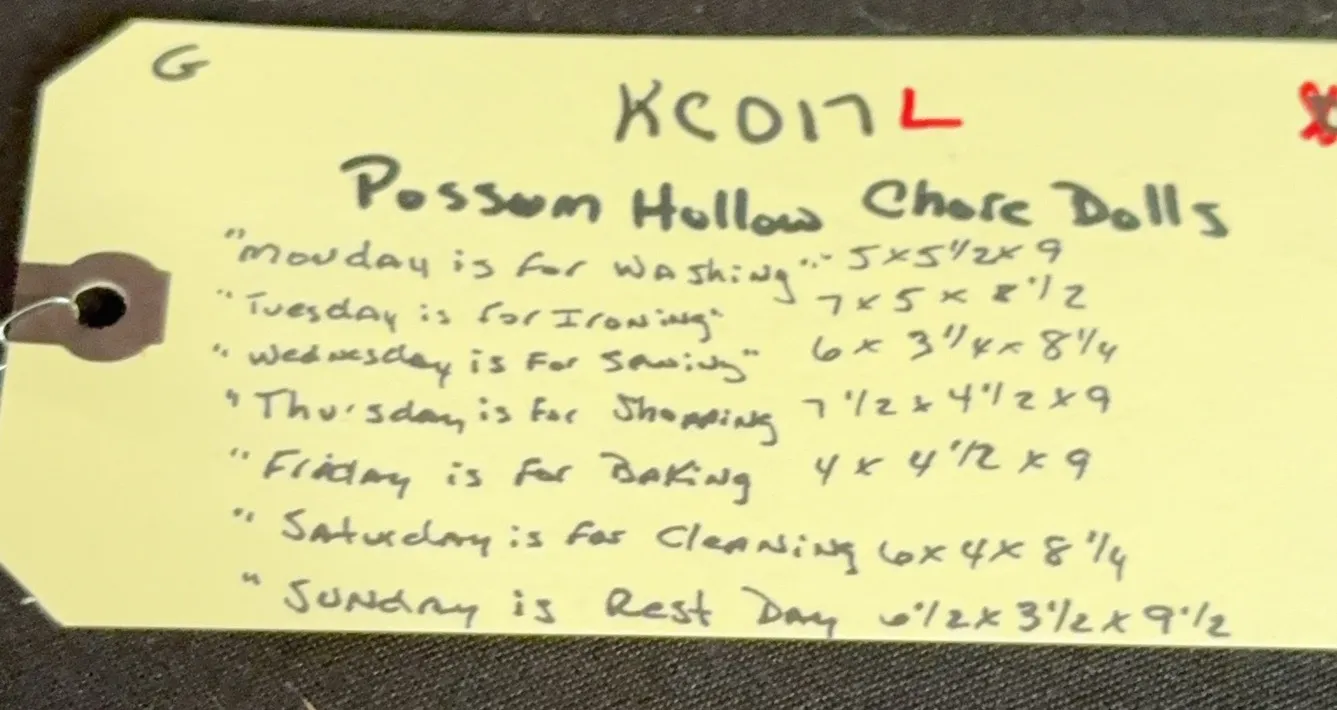 G
KC017L
Possum Hollow Chore Dolls
"Monday is for Washing" 5x5 1/2x9
"Tuesday is for Ironing" 7x5x8 1/2
"Wednesday is For Sewing" 6x 3 1/4x8 1/4
"Thursday is for Shopping 7 1/2x4 1/2x9
"Friday is for Baking 4x 4 1/2 x9
"Saturday is for Cleaning 6x4x8 1/4
"Sunday is Rest Day 6 1/2x3 1/2x9 1/2